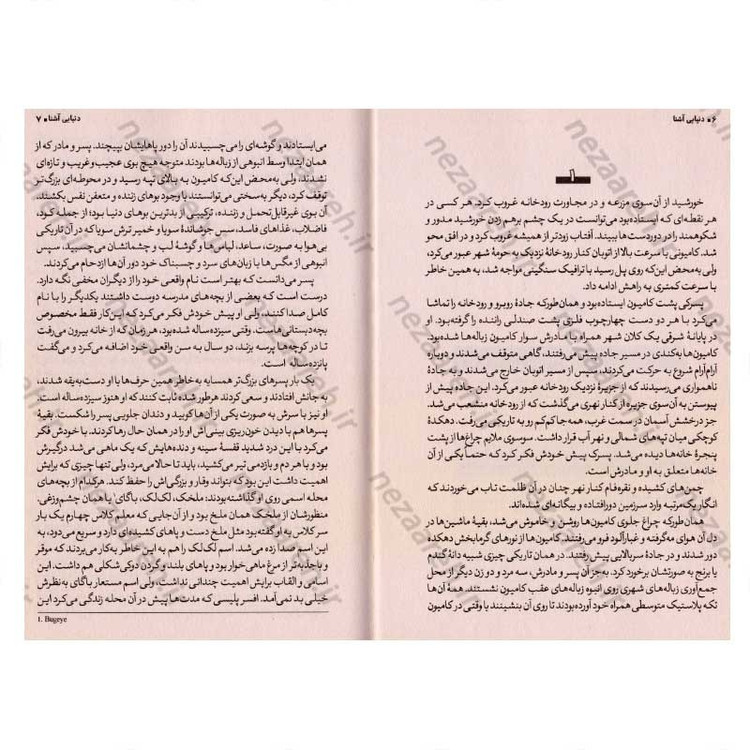 ۶ ■ دنیایی آشنا
۱
خورشید از آن‌سوی مزرعه و در مجاورت رودخانه غروب کرد. هر کسی در
هر نقطه‌ای که ایستاده‌بود می‌توانست در یک چشم برهم زدن خورشید مدور و
شکوهمند را در دوردست‌ها ببیند. آفتاب زودتر از همیشه غروب کرد و در افق محو
شد. کامیونی با سرعت بالا از اتوبان کنار رودخانهٔ نزدیک به حومهٔ شهر عبور می‌کرد،
ولی به‌محض این‌که روی پل رسید با ترافیک سنگینی مواجه شد، به همین خاطر
با سرعت کمتری به راهش ادامه داد.
پسرکی پشت کامیون ایستاده‌بود و همان‌طورکه جادهٔ روبرو و رودخانه را تماشا
می‌کرد با هر دو دست چهارچوب فلزی پشت صندلی راننده را گرفته‌بود. او
در پایانهٔ شرقی یک کلان شهر همراه با مادرش سوار کامیون زباله‌ها شده‌بود.
کامیون‌ها به‌کندی در مسیر جاده پیش می‌رفتند، گاهی متوقف می‌شدند و دوباره
آرام‌آرام شروع به حرکت می‌کردند، سپس از اتوبان خارج می‌شدند و به جادهٔ
ناهمواری می‌رسیدند که از جزیرهٔ نزدیک رودخانه عبور می‌کرد. این جاده پیش از
پیوستن به آن‌سوی جزیره از کنار نهری می‌گذشت که از رودخانه منشعب می‌شد.
جز درخشش آسمان در سمت غرب، همه‌جا کم‌کم رو به تاریکی می‌رفت. دهکدهٔ
کوچکی میان تپه‌های شمالی و نهر آب قرار داشت. سوسوی ملایم چراغ‌ها از پشت
پنجرهٔ خانه‌ها دیده می‌شد. پسرک پیش خودش فکر کرد که حتماً یکی از آن
خانه‌ها متعلق به او و مادرش است.
چمن‌های کشیده و نقره‌فام کنار نهر چنان در آن ظلمت تاب می‌خوردند که
انگار یک‌مرتبه وارد سرزمین دورافتاده و بیگانه‌ای شده‌اند.
همان‌طورکه چراغ جلوی کامیون‌ها روشن و خاموش می‌شد، بقیهٔ ماشین‌ها در
دل آن هوای مه‌گرفته و غبارآلود فرو می‌رفتند. کامیون‌ها از نورهای گرمابخش دهکده
دور شدند و در جادهٔ سربالایی پیش رفتند. در همان تاریکی چیزی شبیه دانهٔ گندم
یا برنج به صورتشان برخورد کرد. به‌جز آن پسر و مادرش، سه مرد و دو زن دیگر از محل
جمع‌آوری زباله‌های شهری روی انبوه زباله‌های عقب کامیون نشستند. همهٔ آن‌ها
تکه پلاستیک متوسطی همراه خود آورده‌بودند تا روی آن بنشینند یا وقتی در کامیون
دنیایی آشنا ■ ۷
می‌ایستادند و گوشه‌ای را می‌چسبیدند آن را دور پاهایشان بپیچند. پسر و مادر که از
همان ابتدا وسط انبوهی از زباله‌ها بودند متوجه هیچ بوی عجیب‌وغریب و تازه‌ای
نشدند، ولی به‌محض این‌که کامیون به بالای تپه رسید و در محوطه‌ای بزرگ‌تر
توقف کرد، دیگر به‌سختی می‌توانستند با وجود بوهای زننده و متعفن نفس بکشند.
آن بوی غیرقابل‌تحمل و زننده، ترکیبی از بدترین بوهای دنیا بود؛ از جمله کود،
فاضلاب، غذاهای فاسد، سس جوشاندهٔ سویا و خمیر ترش سویا که در آن تاریکی
بی‌هوا به صورت، ساعد، لباس‌ها و گوشهٔ لب و چشمانشان می‌چسبید، سپس
انبوهی از مگس‌ها با زبان‌های سرد و چسبناک خود دور آن‌ها ازدحام می‌کردند.
پسر می‌دانست که بهتر است نام واقعی خود را از دیگران مخفی نگه دارد.
درست است که بعضی از بچه‌های مدرسه دوست داشتند یکدیگر را با نام
کامل صدا کنند، ولی او پیش خودش فکر می‌کرد که این‌کار فقط مخصوص
بچه‌دبستانی‌هاست. وقتی سیزده ساله شده‌بود، هر زمان که از خانه بیرون می‌رفت
تا در کوچه‌ها پرسه بزند، دو سال به سن واقعی خود اضافه می‌کرد و می‌گفت
پانزده‌ساله است.
یک بار پسرهای بزرگ‌تر همسایه به خاطر همین حرف‌ها با او دست‌به‌یقه شدند،
به جانش افتادند و سعی کردند هرطور شده ثابت کنند که او هنوز سیزده‌ساله است.
او نیز با سرش به صورت یکی از آن‌ها کوبید و دندان جلویی پسر را شکست. بقیهٔ
پسرها هم با دیدن خون‌ریزی بینی‌اش او را در همان حال رها کردند. با خودش فکر
می‌کرد با این درد شدید قفسهٔ سینه و دنده‌هایش که یک ماهی می‌شد درگیرش
بود و با هر دم و بازدمی تیر می‌کشید، باید تا حالا می‌مرد، ولی تنها چیزی که برایش
اهمیت داشت این بود که بتواند وقار و بزرگی‌اش را حفظ کند. هرکدام از بچه‌های
محله اسمی روی او گذاشته‌بودند: ملخک، لک‌لک، باگای۱ یا همان چشم‌وزغی.
منظورشان از ملخک همان ملخ بود و از آن‌جایی که معلم کلاس چهارم یک بار
سر کلاس به او گفته‌بود مثل ملخ دست و پاهای کشیده‌ای دارد و سریع می‌دود، به
این اسم صدا زده می‌شد. اسم لک‌لک را هم به این خاطر به‌کار می‌بردند که موقر
و باجذبه‌تر از مرغ ماهی‌خوار بود و پاهای بلند و گردن دوکی‌شکلی هم داشت. این
اسامی و القاب برایش اهمیت چندانی نداشت، ولی اسم مستعار باگای به‌نظرش
خیلی بد نمی‌آمد. افسر پلیسی که مدت‌ها پیش در آن محله زندگی می‌کرد این
1. Bugeye
nezaareh.ir